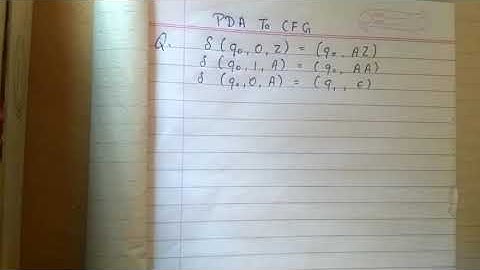 PDA To CFG
Q. δ (q₀, 0, Z) = (q₀, AZ)
δ (q₀, 1, A) = (q₀, AA)
δ (q₀, 0, A) = (q₁, ε)